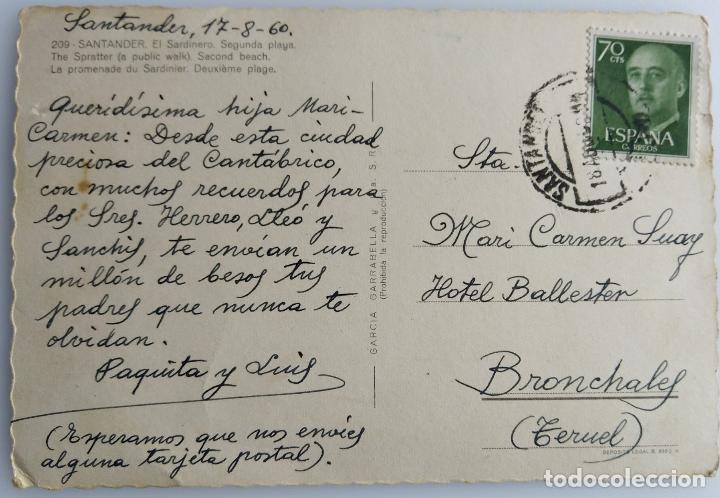 Santander, 17-8-60.
209 - SANTANDER. El Sardinero. Segunda playa.
The Spratter (a public walk). Second beach.
La promenade du Sardinier. Deuxième plage.
Queridísima hija Mari-
Carmen: Desde esta ciudad
preciosa del Cantábrico,
con muchos recuerdos para
los Sres. Herrero, Lleó y
Sanchis, te envían un
millón de besos tus
padres que nunca te
olvidan.
Paquita y Luis
(Esperamos que nos envíes
alguna tarjeta postal).
GARCIA GARRABELLA y Cia. S. R.
(Prohibida la reproducción)
70
CTS
ESPAÑA
CORREOS
SANTANDER
Sta.
Mari Carmen Suay
Hotel Ballester
Bronchales
(Teruel)
DEPOSITO LEGAL B.
todocoleccion.net